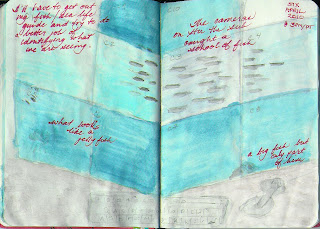 I'll have to get out
my fish/sea life
guide and try to do
a better job of
identifying what
we are seeing.
what looks
like a
jellyfish
The cameras
on the sea
caught a
school of fish
SIX
APRIL
2010
a big fish but
only part
of him